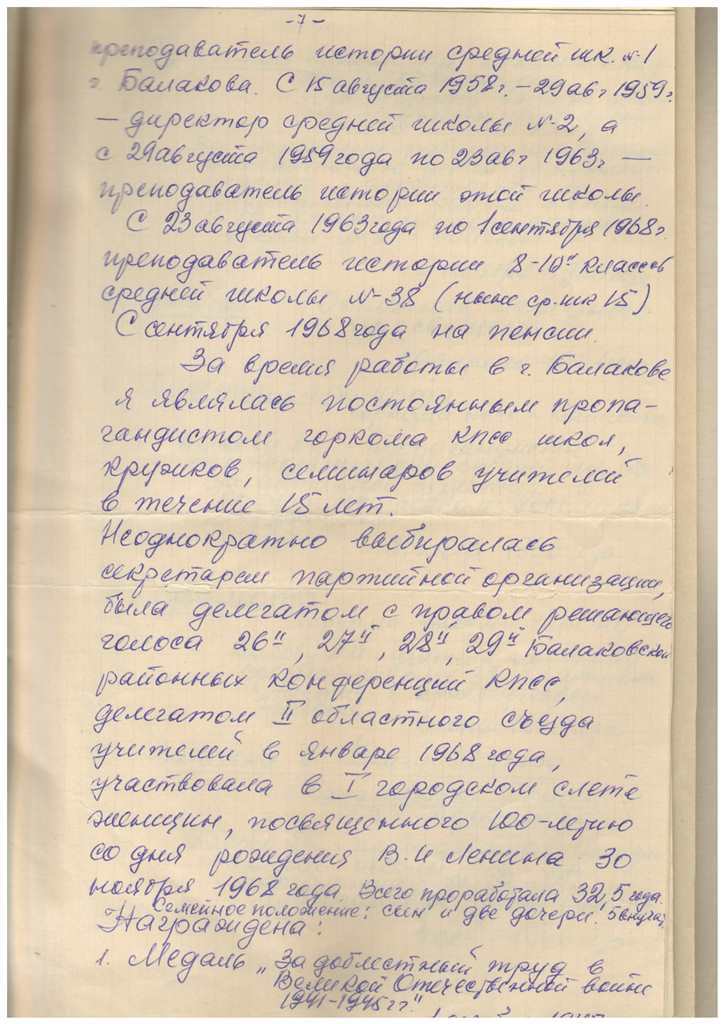 -7-
преподаватель истории средней шк. №1
г. Балакова. С 15 августа 1958г. – 29 авг 1959г.
– директор средней школы №2, а
с 29 августа 1959 года по 23 авг 1963г –
преподаватель истории этой школы.
С 23 августа 1963 года по 1 сентября 1968г.
преподаватель истории 8-10х классов
средней школы №38 (ныне ср. шк 15)
С сентября 1968 года на пенсии.
За время работы в г. Балакове
я являлась постоянным пропа-
гандистом горкома КПСС школ,
кружков, семинаров учителей
в течение 15 лет.
Неоднократно выбиралась
секретарем партийной организации,
была делегатом с правом решающего
голоса 26й, 27й, 28й, 29й Балаковской
районных конференций КПСС,
делегатом II областного съезда
учителей в январе 1968 года,
участвовала в I городском слете
женщин, посвященного 100-летию
со дня рождения В.И Ленина 30
ноября 1968 года. Всего проработала 32,5 года.
Семейное положение: сын и две дочери. 5 внучат.
Награждена:
1. Медаль „За доблестный труд в
Великой Отечественной войне
1941-1945гг"